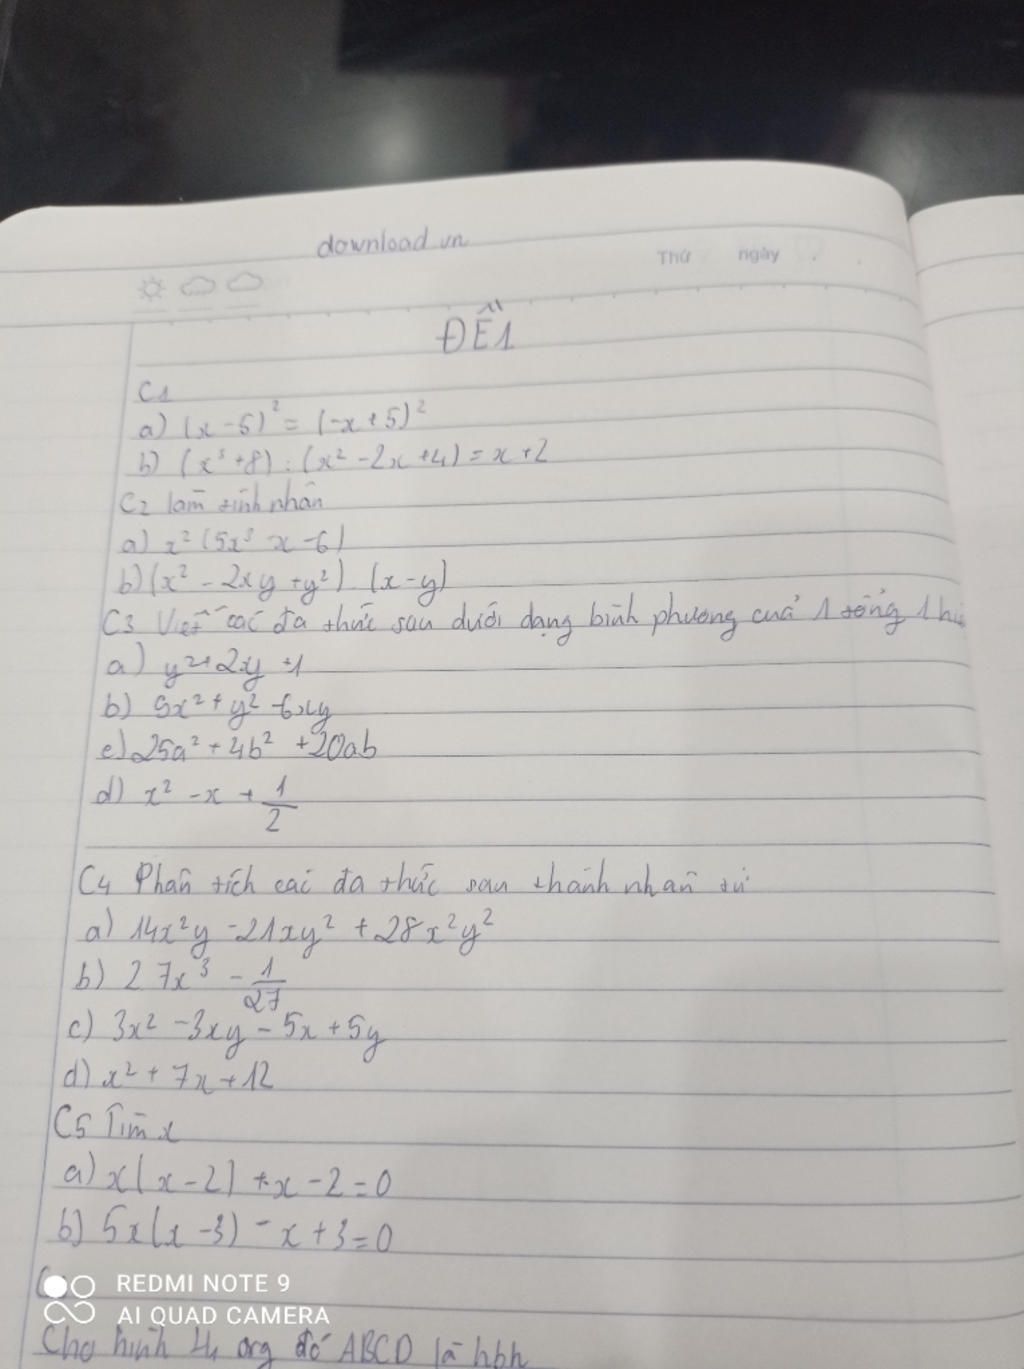 download.vn
Thứ ngày
ĐỀ 1
C1
a) (x - 5)² = (-x + 5)²
b) (x³ + 8) : (x² - 2x + 4) = x + 2
C2 làm tính nhân
a) x² (5x³ - x - 6)
b) (x² - 2xy + y²) (x - y)
C3 Viết các đa thức sau dưới dạng bình phương của 1 tổng 1 hiệ
a) y² + 2y + 1
b) 9x² + y² - 6xy
c) 25a² + 4b² + 20ab
d) x² - x + 1/2
C4 Phân tích các đa thức sau thành nhân tử
a) 14x²y - 21xy² + 28x²y²
b) 27x³ - 1/27
c) 3x² - 3xy - 5x + 5y
d) x² + 7x + 12
C5 Tìm x
a) x(x - 2) + x - 2 = 0
b) 5x(x - 3) - x + 3 = 0
REDMI NOTE 9
AI QUAD CAMERA
Cho hình đó ABCD là hbh